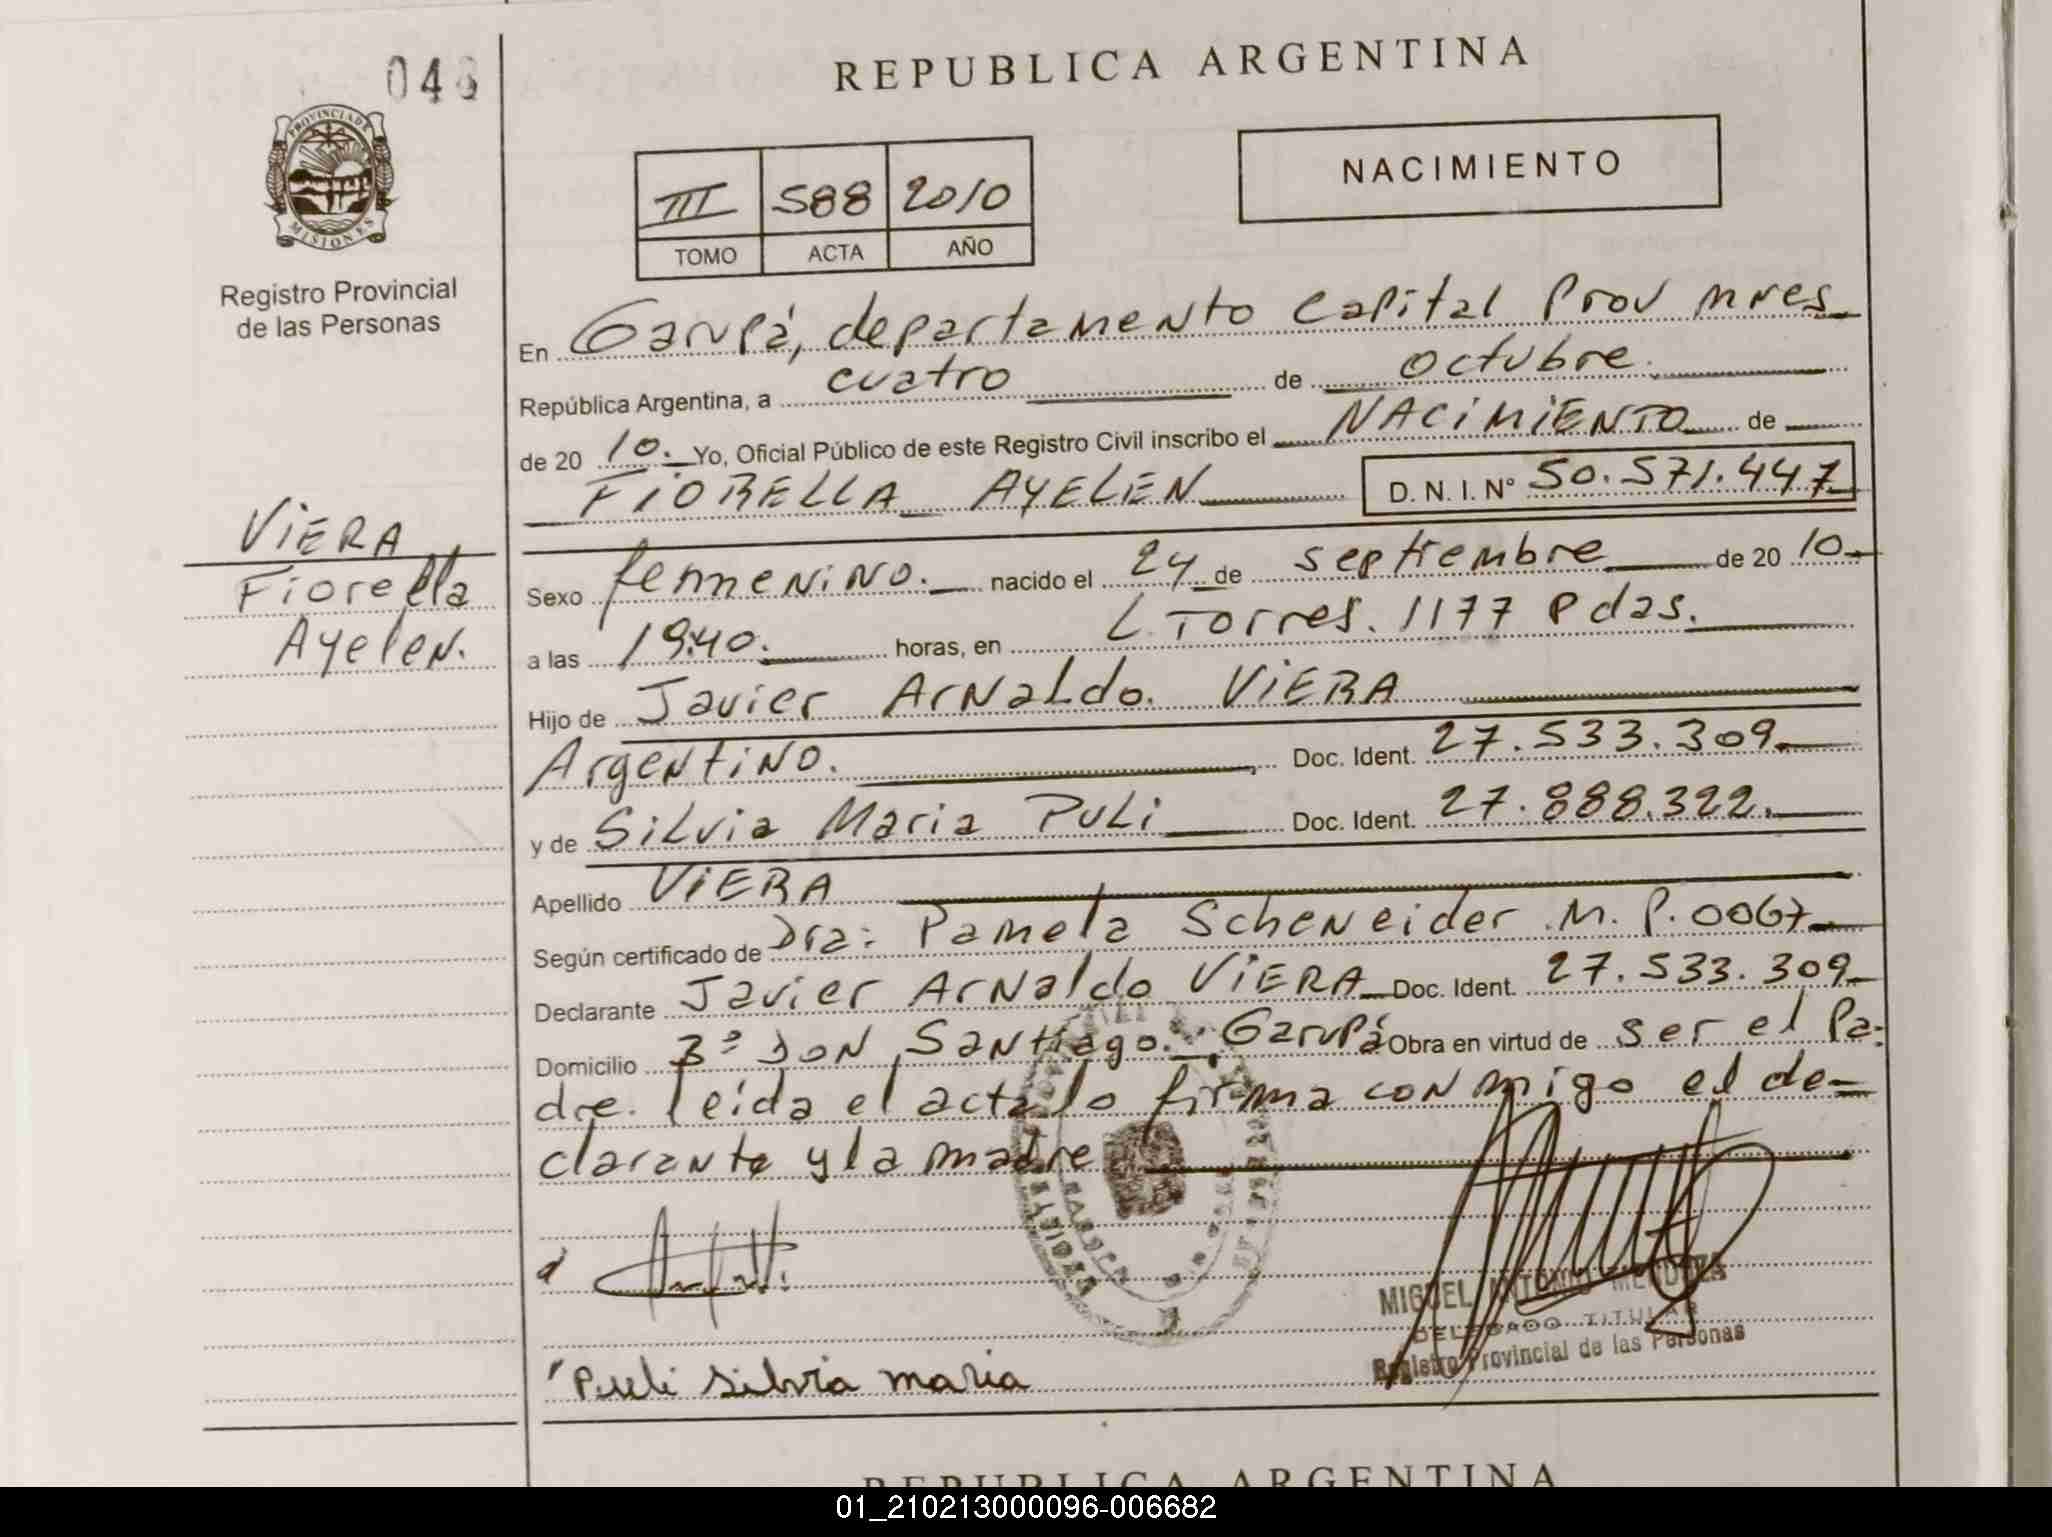 048
PROVINCIA DE
MISIONES
Registro Provincial
de las Personas
VIERA
Fiorella
Ayelen.
REPUBLICA ARGENTINA
NACIMIENTO
III 588 2010
TOMO ACTA AÑO
En Garupá, departamento Capital Prov mnes
República Argentina, a cuatro de octubre
de 20 10. Yo, Oficial Público de este Registro Civil inscribo el NACIMIENTO de
FIORELLA AYELEN D. N. I. Nº 50.571.447
Sexo femenino. nacido el 24 de septiembre de 20 10
a las 19:40. horas, en L. Torres. 1177 Pdas.
Hijo de Javier Arnaldo. VIERA
Argentino. Doc. Ident. 27.533.309
y de Silvia Maria Puli Doc. Ident. 27.888.322.
Apellido VIERA
Según certificado de Dra: Pamela Scheneider M. P. 0067
Declarante Javier Arnaldo VIERA Doc. Ident. 27.533.309
Domicilio Bº Don Santiago. Garupá Obra en virtud de ser el Pa-
dre. leida el acta lo firma conmigo el de-
clarante y la madre
MIGUEL ANTONIO MENDOZA
DELEGADO TITULAR
Registro Provincial de las Personas
Puli Silvia maria
REPUBLICA ARGENTINA
01_210213000096-006682